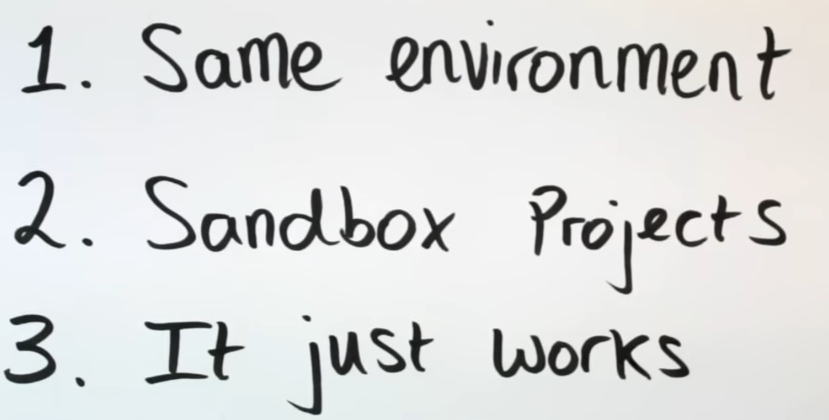 1. Same environment
2. Sandbox Projects
3. It just works